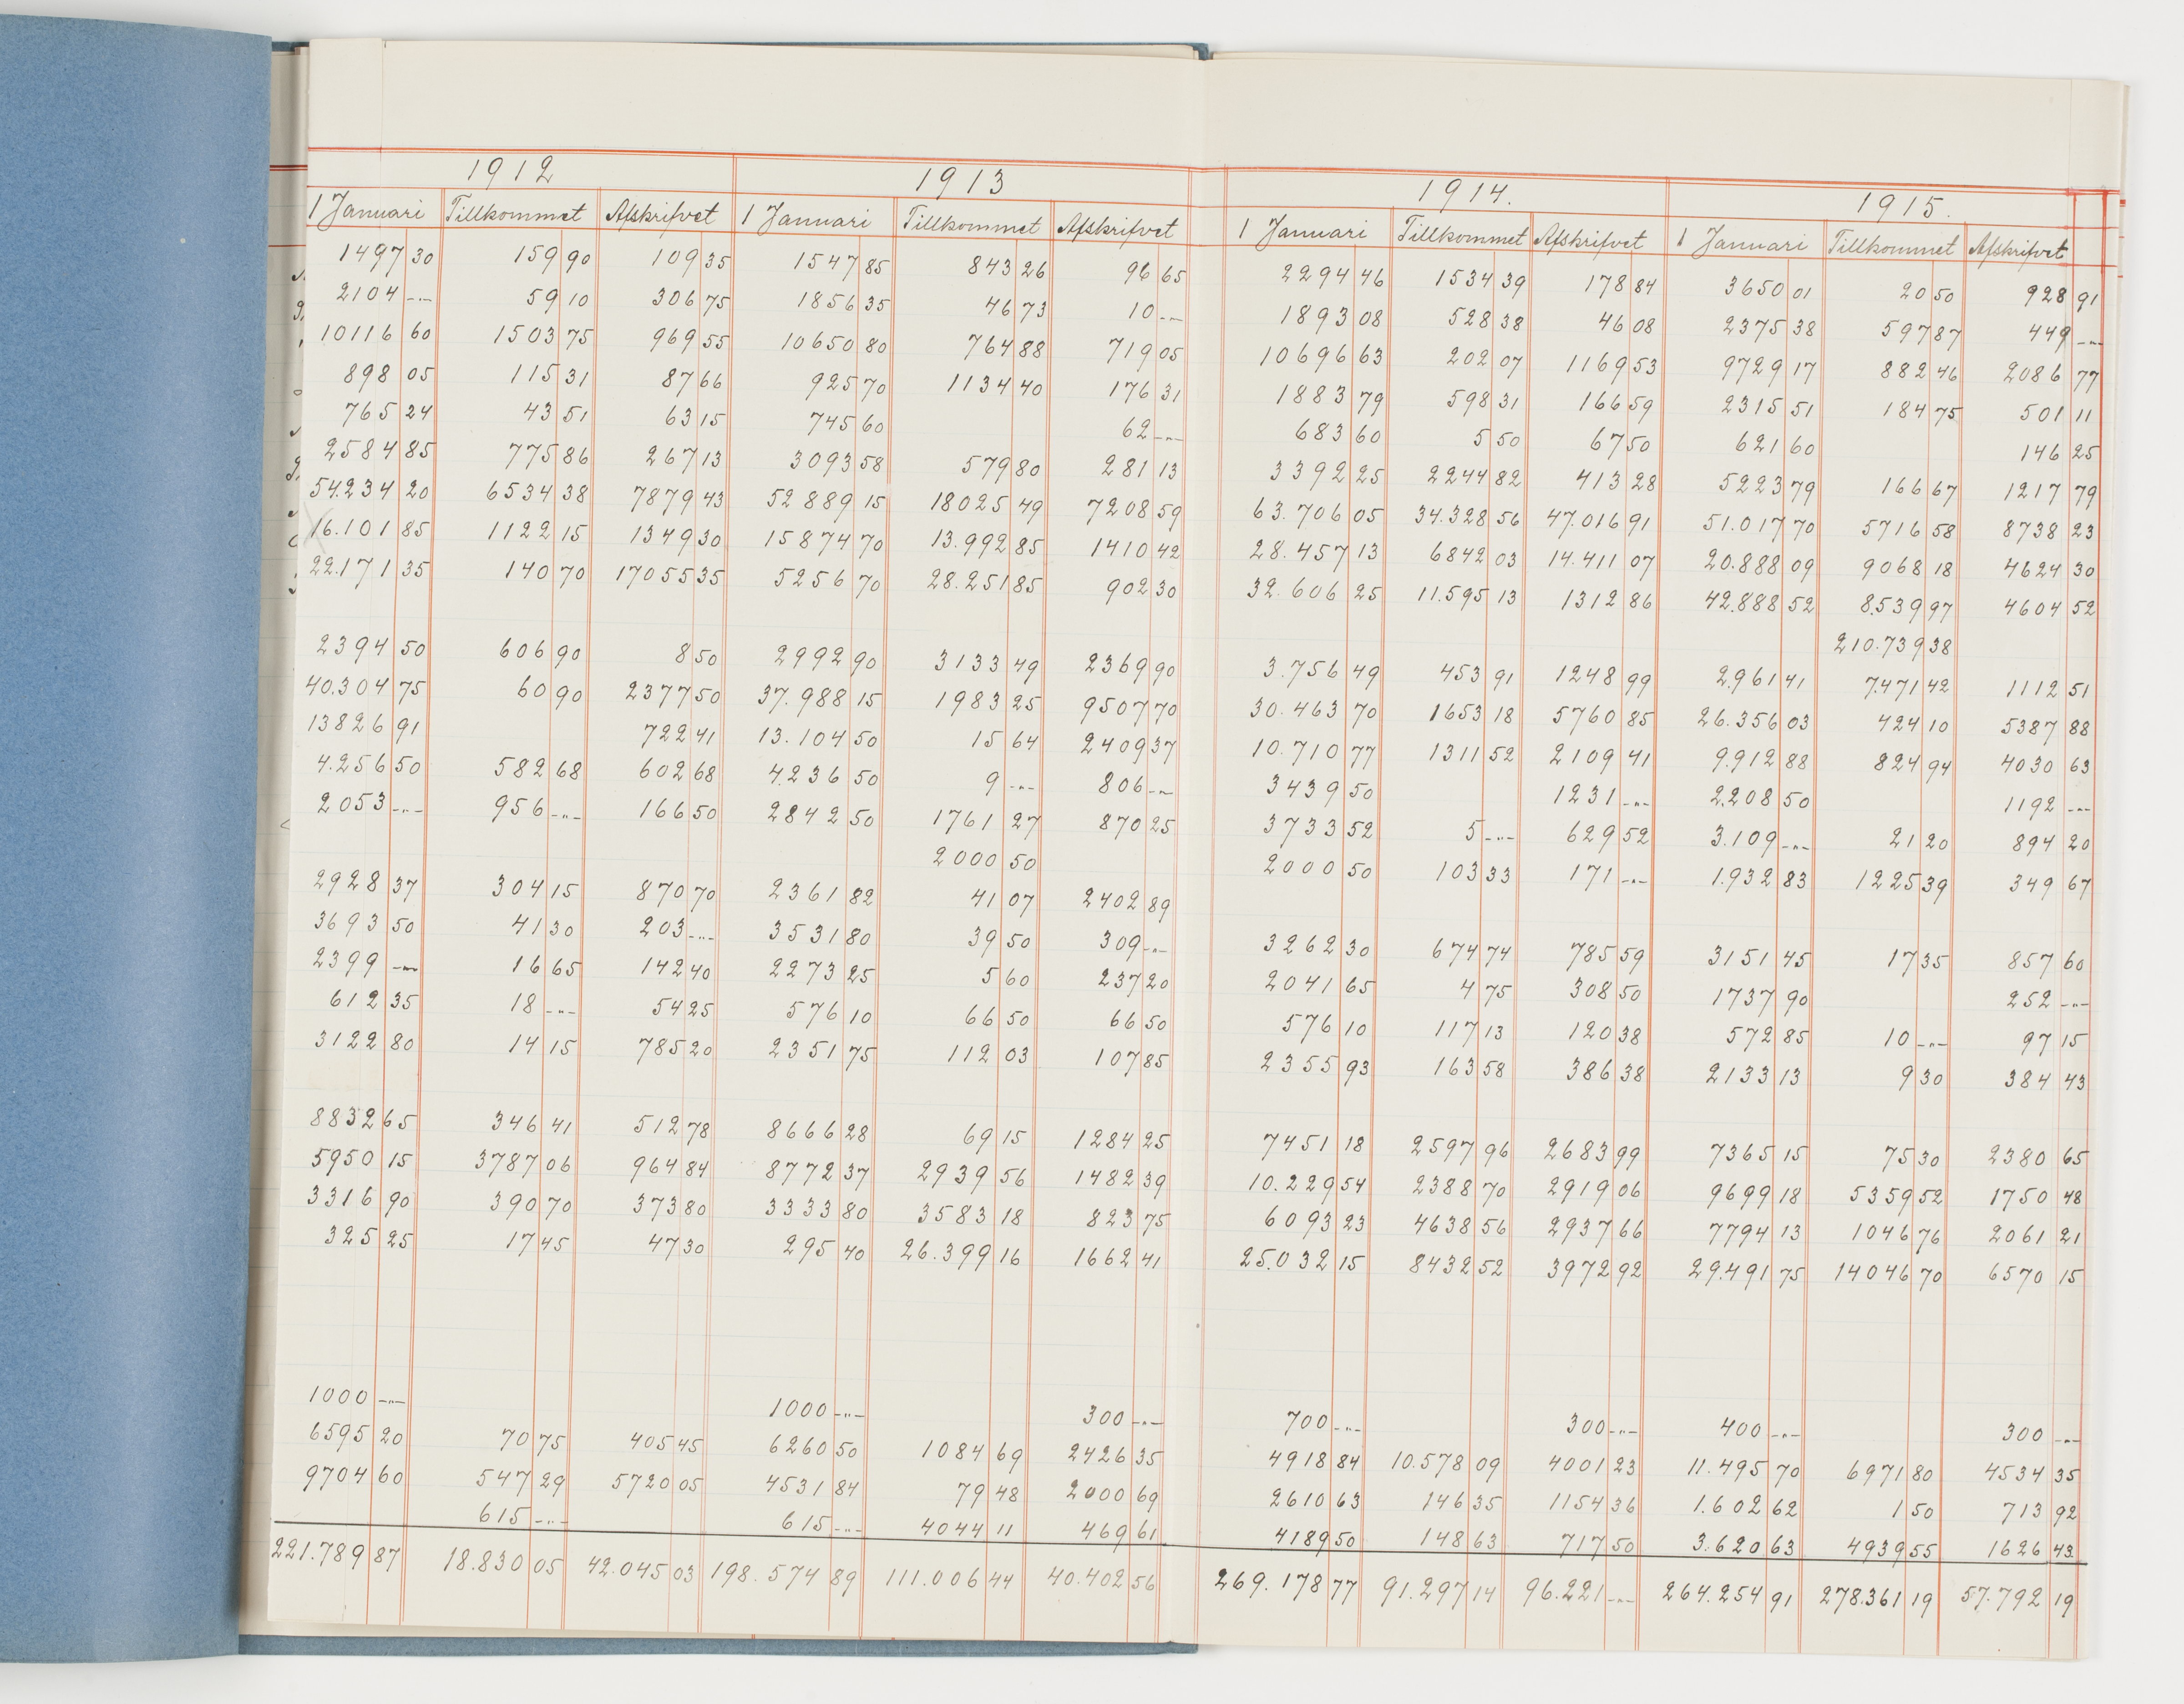 1912 1913 1914. 1915.
1 Januari Tillkommet Afskrifvet 1 Januari Tillkommet Afskrifvet 1 Januari Tillkommet Afskrifvet 1 Januari Tillkommet Afskrifvet
1497 30 159 90 109 35 1547 85 843 26 96 65 2294 46 1534 39 178 84 3650 01 20 50 928 91
2104 -"- 59 10 306 75 1856 35 46 73 10 -"- 1893 08 528 38 46 08 2375 38 597 87 449 -"-
10116 60 1503 75 969 55 10650 80 764 88 719 05 10696 63 202 07 1169 53 9729 17 882 46 2086 77
898 05 115 31 87 66 925 70 1134 40 176 31 1883 79 598 31 166 59 2315 51 184 75 501 11
765 24 43 51 63 15 745 60 62 -"- 683 60 5 50 67 50 621 60 146 25
2584 85 775 86 267 13 3093 58 579 80 281 13 3392 25 2244 82 413 28 5223 79 166 67 1217 79
54.234 20 6534 38 7879 43 52889 15 18025 49 7208 59 63.706 05 34.328 56 47.016 91 51.017 70 5716 58 8738 23
16.101 85 1122 15 1349 30 15874 70 13.992 85 1410 42 28.457 13 6842 03 14.411 07 20.888 09 9068 18 4624 30
22.171 35 140 70 17055 35 5256 70 28.251 85 902 30 32.606 25 11.595 13 1312 86 42.888 52 8.539 97 4604 52
210.739 38
2394 50 606 90 8 50 2992 90 3133 49 2369 90 3.756 49 453 91 1248 99 2.961 41 7.471 42 1112 51
40.304 75 60 90 2377 50 37.988 15 1983 25 9507 70 30.463 70 1653 18 5760 85 26.356 03 424 10 5387 88
13826 91 722 41 13.104 50 15 64 2409 37 10.710 77 1311 52 2109 41 9.912 88 824 94 4030 63
4.256 50 582 68 602 68 4.236 50 9 -"- 806 -"- 3439 50 1231 -"- 2.208 50 1192 -"-
2053 -"- 956 -"- 166 50 2842 50 1761 27 870 25 3733 52 5 -"- 629 52 3.109 -"- 21 20 894 20
2000 50 2000 50 103 33 171 -"- 1.932 83 1225 39 349 67
2928 37 304 15 870 70 2361 82 41 07 2402 89
3693 50 41 30 203 -"- 3531 80 39 50 309 -"- 3262 30 674 74 785 59 3151 45 17 35 857 60
2399 -"- 16 65 142 40 2273 25 5 60 237 20 2041 65 4 75 308 50 1737 90 252 -"-
612 35 18 -"- 54 25 576 10 66 50 66 50 576 10 117 13 120 38 572 85 10 -"- 97 15
3122 80 14 15 785 20 2351 75 112 03 107 85 2355 93 163 58 386 38 2133 13 9 30 384 43
8832 65 346 41 512 78 8666 28 69 15 1284 25 7451 18 2597 96 2683 99 7365 15 75 30 2380 65
5950 15 3787 06 964 84 8772 37 2939 56 1482 39 10.229 54 2388 70 2919 06 9699 18 5359 52 1750 48
3316 90 390 70 373 80 3333 80 3583 18 823 75 6093 23 4638 56 2937 66 7794 13 1046 76 2061 21
325 25 17 45 47 30 295 40 26.399 16 1662 41 25.032 15 8432 52 3972 92 29.491 75 14046 70 6570 15
1000 -"- 1000 -"- 300 -"- 700 -"- 300 -"- 400 -"- 300 -"-
6595 20 70 75 405 45 6260 50 1084 69 2426 35 4918 84 10.578 09 4001 23 11.495 70 6971 80 4534 35
9704 60 547 29 5720 05 4531 84 79 48 2000 69 2610 63 146 35 1154 36 1.602 62 1 50 713 92
615 -"- 615 -"- 4044 11 469 61 4189 50 148 63 717 50 3.620 63 4939 55 1626 43
221.789 87 18.830 05 42.045 03 198.574 89 111.006 44 40.402 56 269.178 77 91.297 14 96.221 -"- 264.254 91 278.361 19 57.792 19